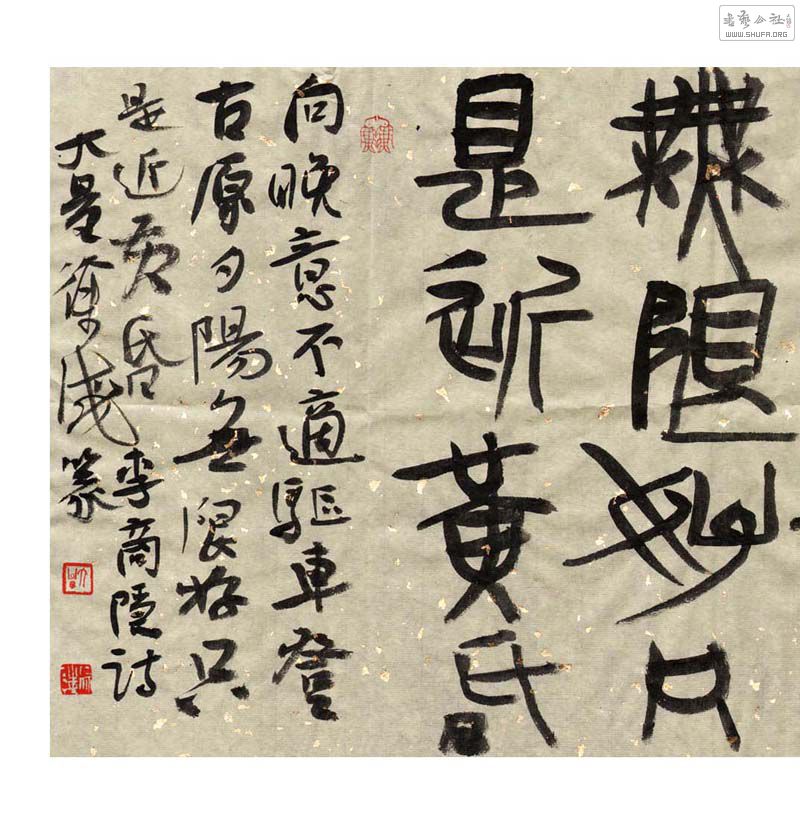 書藝公社
WWW.SHUFA.ORG
無限好只
是近黃昏
向晚意不適驅車登
古原夕陽無限好只
是近黃昏李商隱詩
大篆